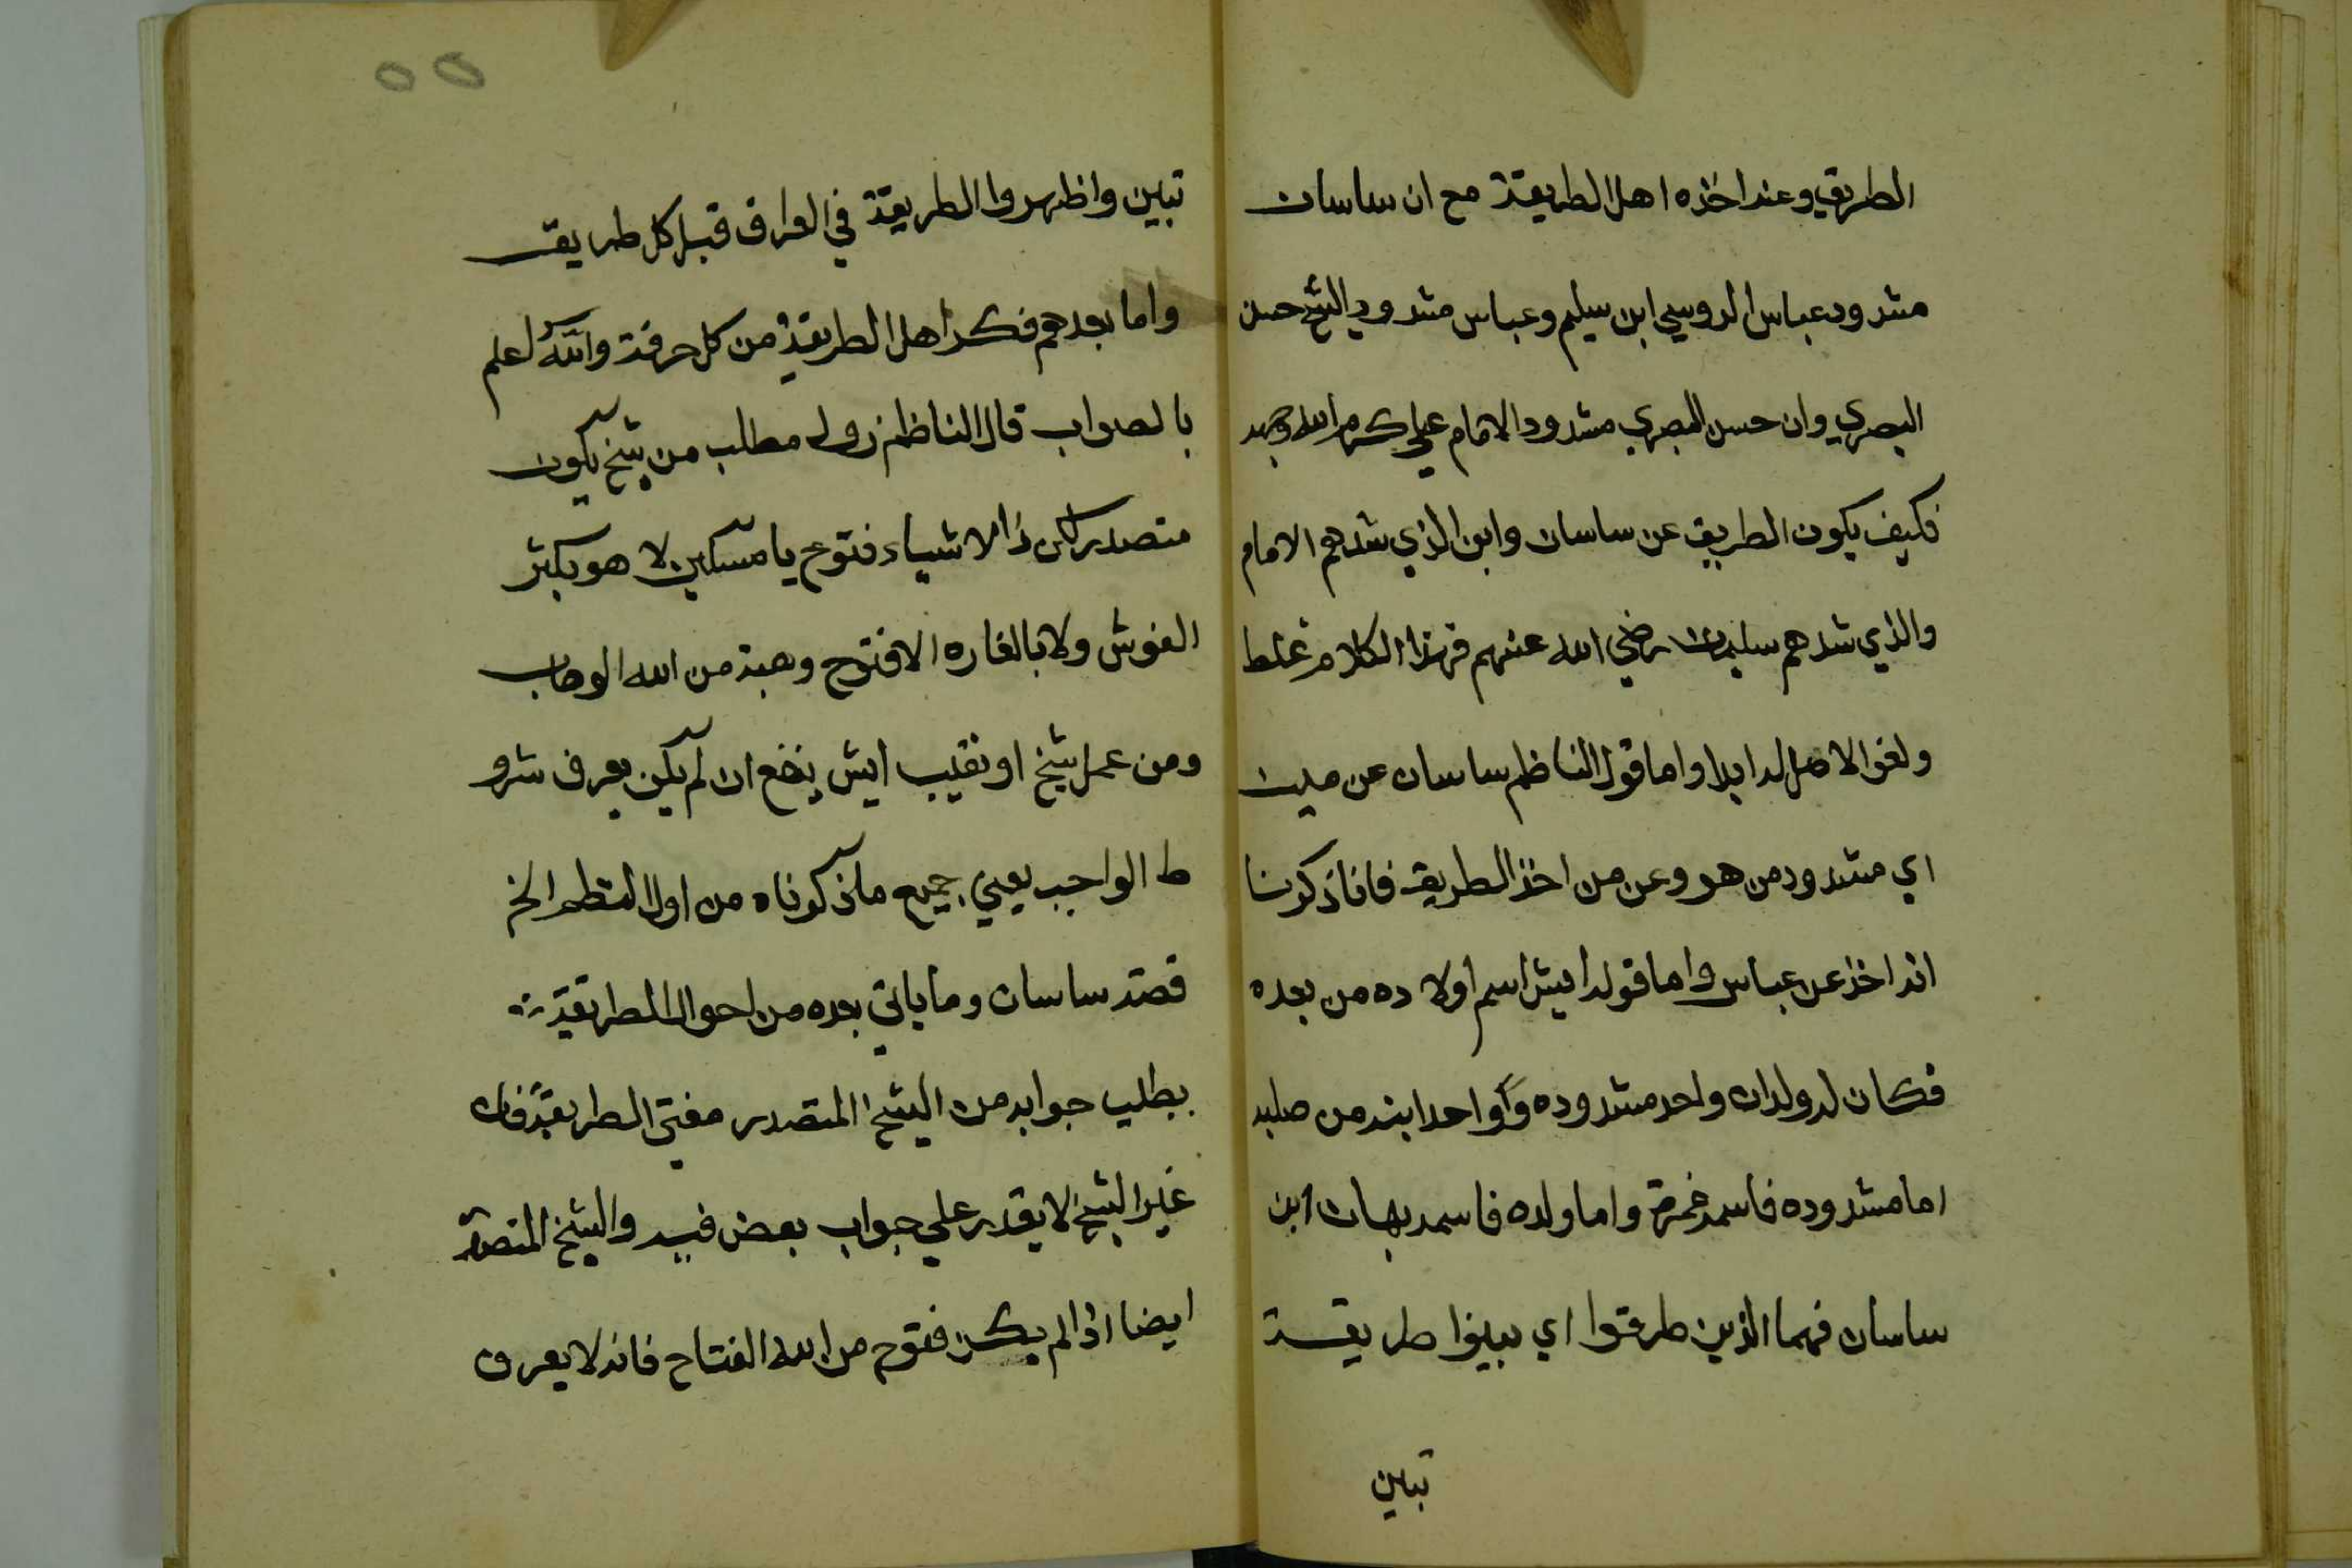 الطريق وعند اخذه اهل الطريقة مع ان ساسان
مشدود عباس الدوسي ابن سليم وعباس مشدود الشيخ حسن
البصري وان حسن البصري مشدود الامام علي كرم الله وجهه
فكيف يكون الطريق عن ساسان وابن الذي شدهم الامام
والذي شدهم سليمان رضي الله عنهم فهذا الكلام غلط
ولغز الاصل له ابدا واما قول الناظم ساسان عن مين
اي مشدود من هو وعن من اخذ الطريق فاناذكرنا
انه اخذ عن عباس واما قوله ايش اسم اولاده من بعده
فكان له ولدان واحد مشدوده وواحد ابنه من صلبه
اما مشدوده فاسمه خمرة واما ولده فاسمه بهات ابن
ساسان فهما الذين طرقوا اي بينوا طريقة
تبين
٥٥
تبين واظهروا الطريقة في العراق قبل كل طريق
واما بعدهم فكد اهل الطريقة من كل حرفة والله اعلم
بالصواب قال الناظم زول مطلب من شيخ يكون
متصدر كن ذا الاشياء فتوح يا مسكين لا هو بكتر
الغوش ولا بالغاره الا فتوح وهبة من الله الوهاب
ومن عمل شيخ او نقيب ايش ينفع ان لم يكن يعرف شرو
ط الواجب يعني جميع ماذكوناه من اول النظم الخ
قصة ساسان وما ياتي بعده من احوال الطريقة
بطلب جوابه من الشيخ المتصدر مفتي الطريقة فان
غير الشيخ لا يقدر علي جواب بعض فيه والشيخ المتصدر
ايضا اذا لم يكن فتوح من الله الفتاح فانه لا يعرف